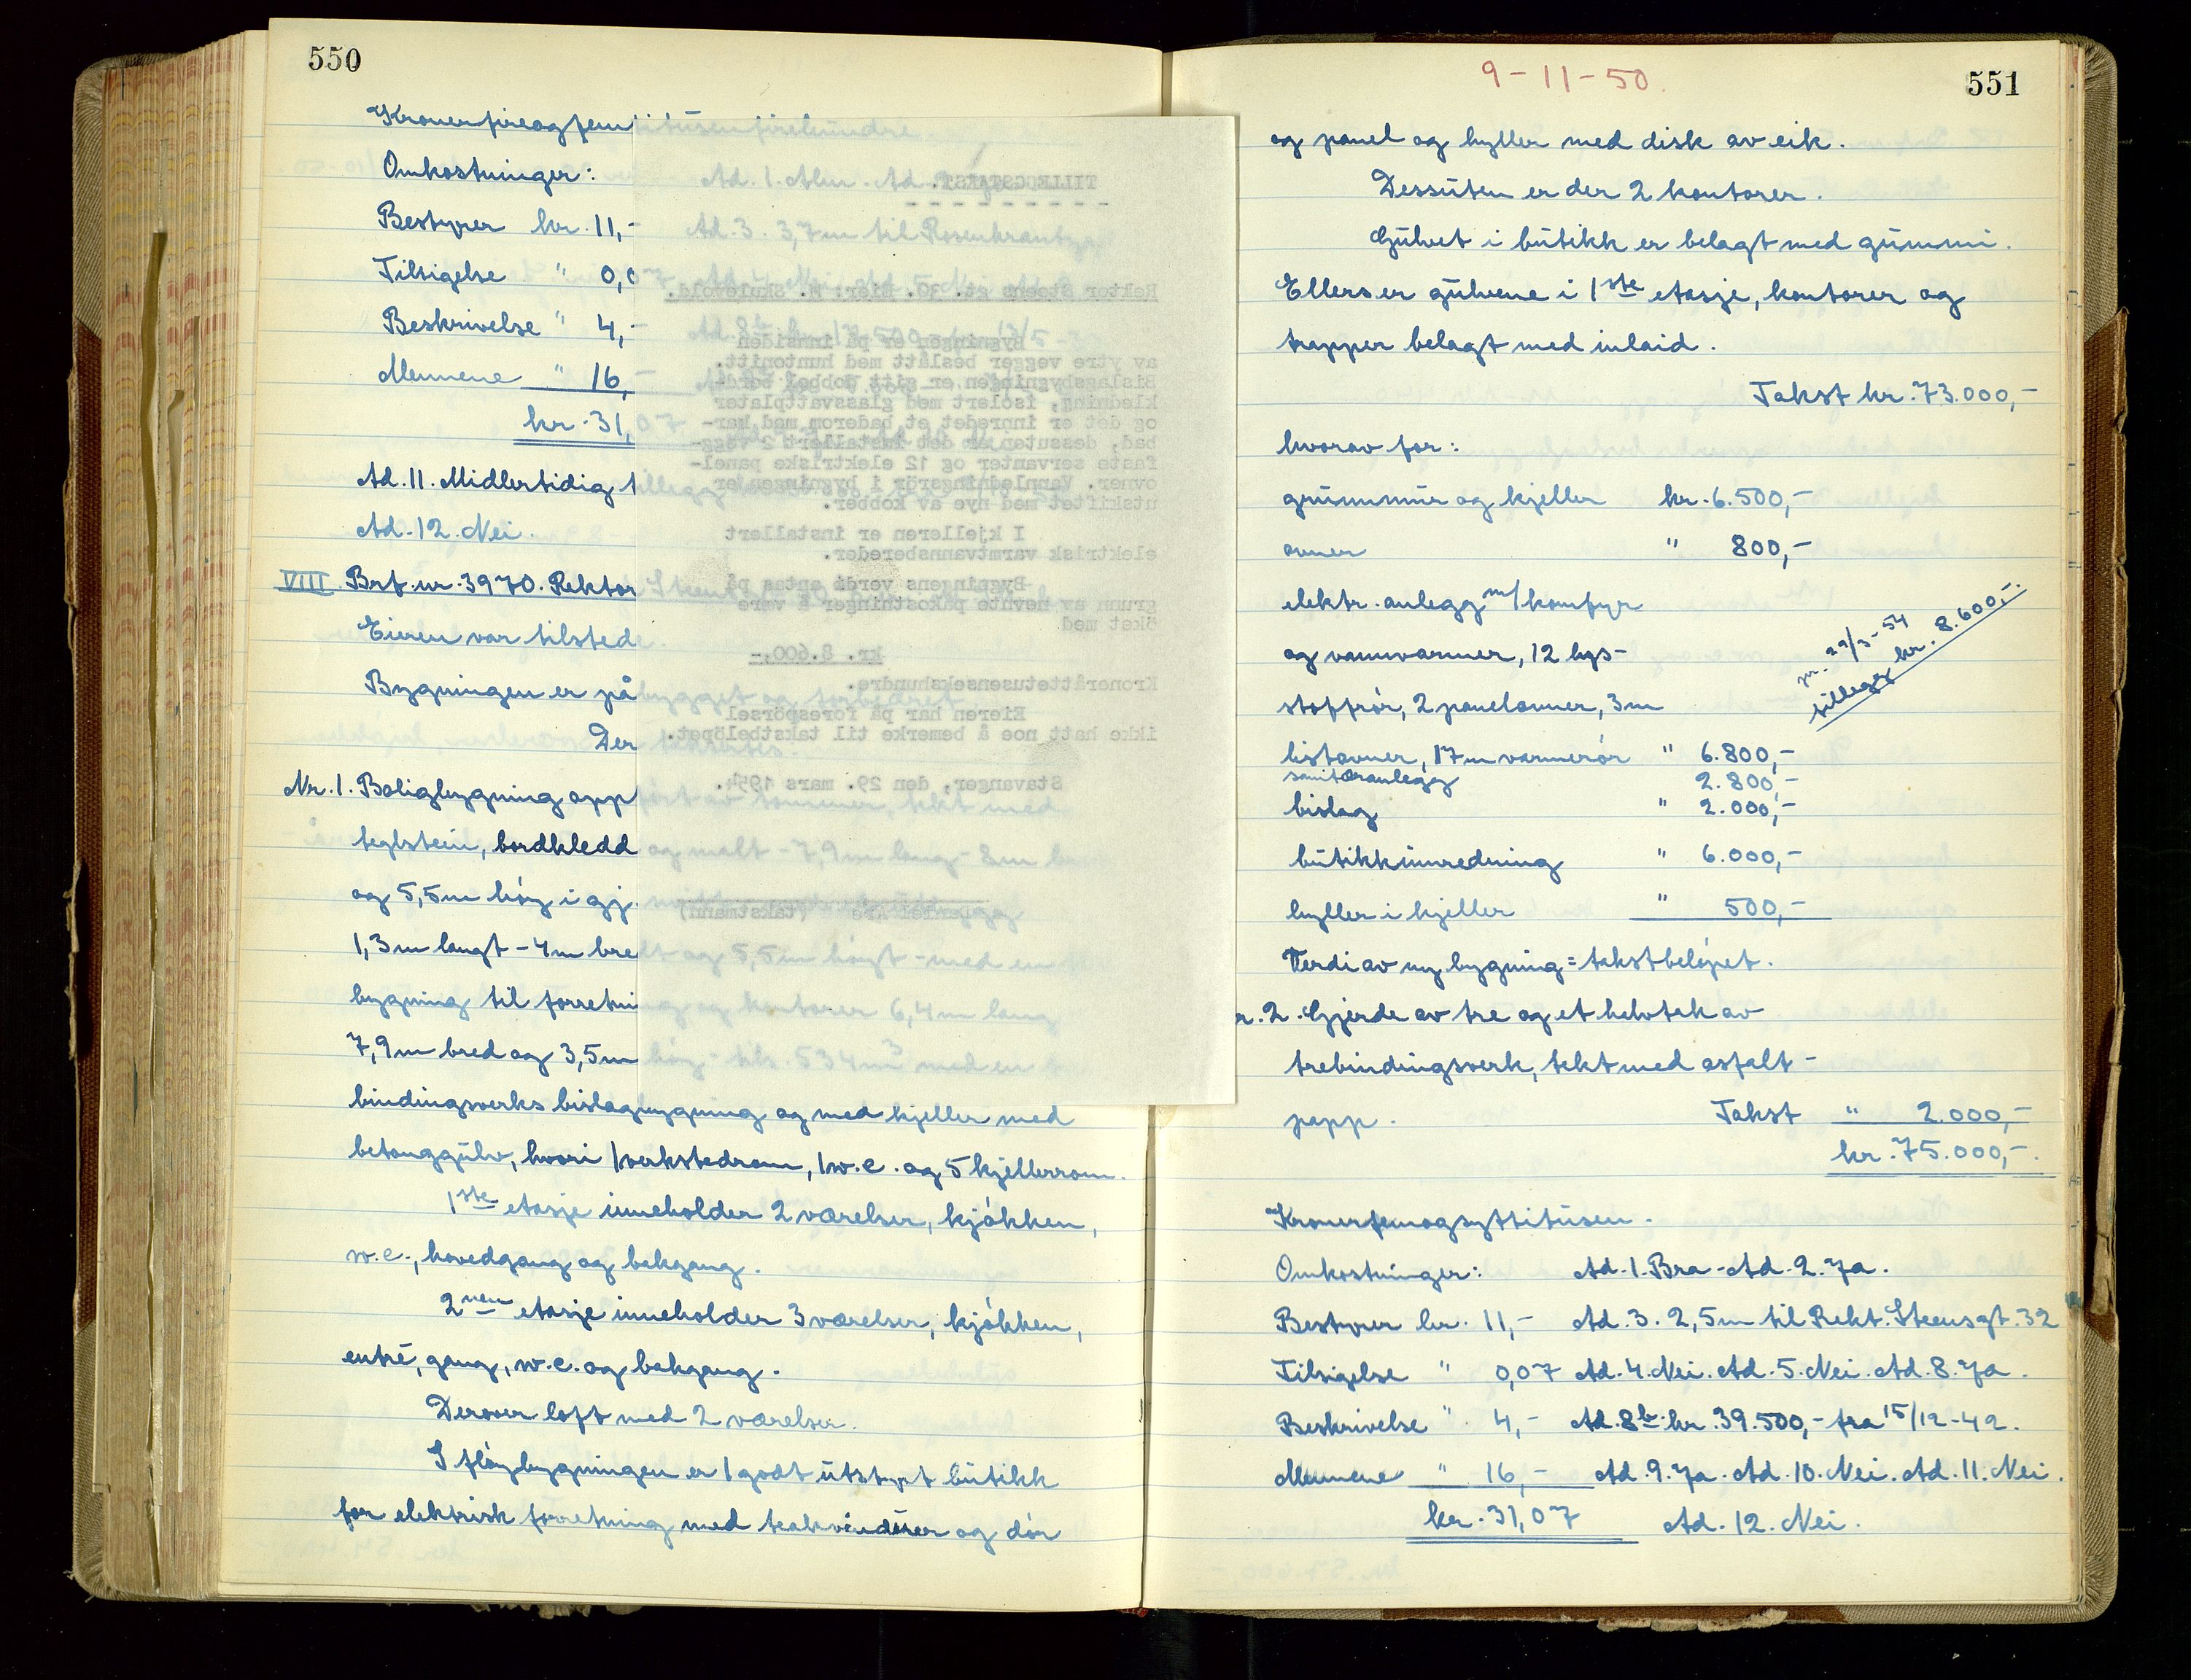 550
Kronerfireogfemtitusenfirehundre.
Omkostninger:
Bestyrer kr. 11,-
Tilsigelse " 0,07
Beskrivelse " 4,-
Mennene " 16,-
kr. 31,07
Ad. 11. Midlertidig tillegg
Ad. 12. Nei.
VIII. Brf. nr. 3970. Rektor Steens
Eieren var tilstede.
Bygningen er påbygget og forbedret
Der takseres:
Nr. 1. Boligbygning oppført av tømmer, tekt med
teglstein, bordkledd og malt - 7,9m lang - 8m bred
og 5,5m høy i gj.
1,3m langt - 4m bredt og 5,5m høyt - med en
bygning til forretning og kontorer 6,4m lang
7,9m bred og 3,5m høy - tils. 534m³ med en
bindingsverks bislagbygning og med kjeller med
betonggulv, hvori 1 verkstedrom, 1 w.c. og 5 kjellerrom.
1ste etasje inneholder 2 værelser, kjøkken,
w.c., hovedgang og bakgang.
2nen etasje inneholder 3 værelser, kjøkken,
entré, gang, w.c. og bakgang.
Derover loft med 2 værelser.
I fløybygningen er 1 godt utstyrt butikk
for elektrisk forretning med teakvinduer og dør
TILLEGGSTAKST.
Rektor Steens gt. 30. Eier: M. Skulevold.
Bygningen er på innsiden
av ytre vegger beslått med huntonitt.
Bislagsbygningen er gitt dobbel bord-
kledning, isolert med glassvattplater
og det er innredet et baderom med kar-
bad, dessuten er det installert 2 vegg-
faste servanter og 12 elektriske panel-
ovner. Vannledningsrør i bygningen er
utskiftet med nye av kobber.
I kjelleren er installert
elektrisk varmtvannsbereder.
Bygningens verdi antas på
grunn av nevnte påkostninger å være
öket med
kr. 8.600,-
Kroneråttetusensekshundre.
Eieren har på forespörsel
ikke hatt noe å bemerke til takstbelöpet.
Stavanger, den 29. mars 1954.
(takstmann)
9-11-50.
551
og panel og hyller med disk av eik.
Dessuten er der 2 kontorer.
Gulvet i butikk er belagt med gummi.
Ellers er gulvene i 1ste etasje, kontorer og
trapper belagt med inlaid.
Takst kr. 73.000,-
hvorav for:
grunnmur og kjeller kr. 6.500,-
ovner " 800,-
elektr. anlegg m/komfyr
og vannvarmer, 12 lys-
stoffrør, 2 panelovner, 3m
listovner, 17m varmerør " 6.800,-
sanitæranlegg 2.800,-
bislag " 2.000,-
butikkinnredning " 6.000,-
hyller i kjeller " 500,-
pr. 29/3-54
tillegg kr. 8.600,-
Verdi av ny bygning = takstbeløpet.
r. 2. Gjerde av tre og et halvtak av
trebindingsverk, tekt med asfalt-
papp. Takst " 2.000,-
kr. 75.000,-.
Kronerfemogsyttitusen.
Omkostninger: Ad. 1. Bra - Ad. 2. Ja.
Bestyrer kr. 11,- Ad. 3. 2,5m til Rekt. Steensgt. 32
Tilsigelse " 0,07 Ad. 4. Nei. Ad. 5. Nei. Ad. 8. Ja.
Beskrivelse " 4,- Ad. 8b kr. 39.500,- fra 15/12-42.
Mennene " 16,- Ad. 9. Ja. Ad. 10. Nei. Ad. 11. Nei.
kr. 31,07 Ad. 12. Nei.